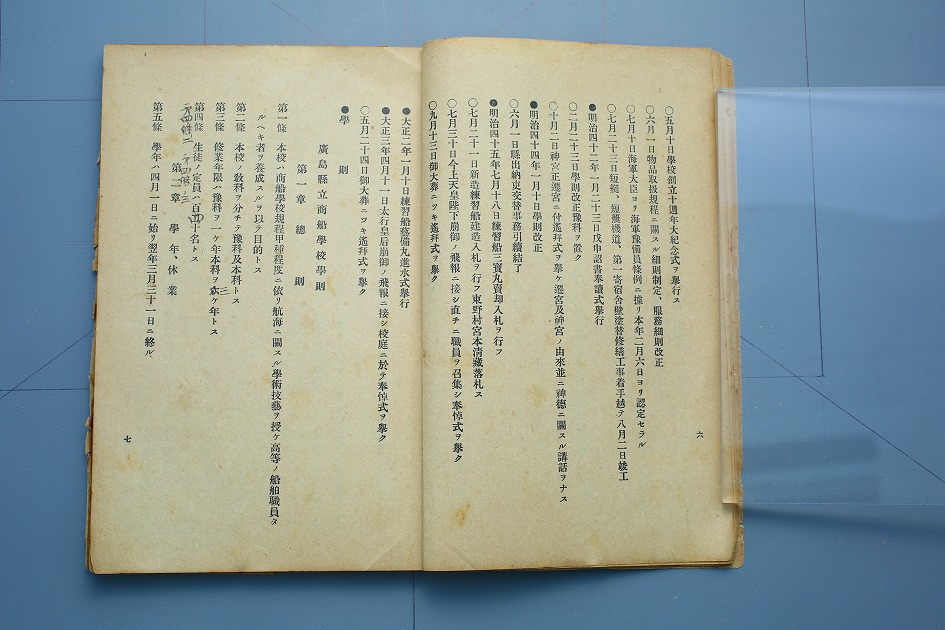 〇五月十日學校創立十週年大紀念式ヲ擧行ス
〇六月一日物品取扱規程ニ關スル細則制定、服務細則改正
〇七月十日海軍大臣ヨリ海軍豫備員條例ニ據リ本年二月六日ヨリ認定セラル
〇七月二十三日短艇、短艇機道、第一寄宿舍壁塗替修繕工事着手越ヲ八月二日竣工
●明治四十二年一月二十三日戊申詔書奉讀式擧行
〇二月二十三日學則改正豫科ヲ置ク
〇十月二日神宮正遷宮ニ付遙拜式ヲ擧ケ遷宮及神宮ノ由來並ニ神德ニ關スル講話ヲナス
●明治四十四年一月十日學則改正
〇六月一日縣出納吏交替事務引續結了
●明治四十五年七月十八日練習船三寶丸賣却入札ヲ行フ
〇七月二十一日新造練習船建造入札ヲ行フ東野村宮本清藏落札ス
〇七月三十日今上天皇陛下崩御ノ飛報ニ接シ直チニ職員ヲ召集シ奉悼式ヲ擧ク
〇九月十三日御大葬ニツキ遙拜式ヲ擧ク
六
●大正二年一月十日練習船藝備丸進水式擧行
●大正三年四月十一日太行皇后崩御ノ飛報ニ接シ校庭ニ於テ奉悼式ヲ擧ク
〇五月二十四日御大葬ニツキ遙拜式ヲ擧ク
●學則
廣島縣立商船學校學則
第一章 總則
第一條 本校ハ商船學校規程甲種程度ニ依リ航海ニ關スル學術技藝ヲ授ケ高等ノ船舶職員タ
ルヘキ者ヲ養成スルヲ以テ目的トス
第二條 本校ノ敎科ヲ分チテ豫科及本科トス
第三條 修業年限ハ豫科ヲ一ケ年本科ヲ三ケ年トス
第四條 生徒ノ定員ハ百四十名トス
第四條ノ二 第四條ノ三
第二章 學年、休業
第五條 學年ハ四月一日ニ始リ翌年三月三十一日ニ終ル
七